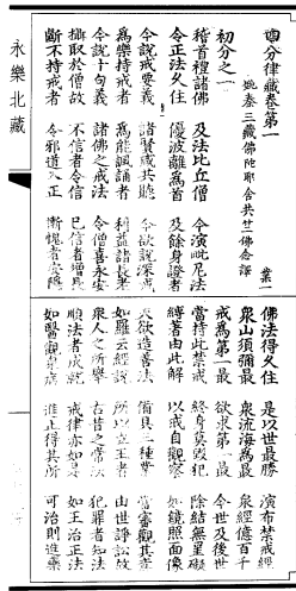 永樂北藏
四分律藏卷第一 業一
姚秦三藏佛陀耶舍共竺佛念譯
初分之一
稽首禮諸佛 及法比丘僧 今演毗尼法
令正法久住 優波離為首 及餘身證者
今說戒要義 諸賢咸共聽 今欲說深戒
為樂持戒者 為能諷誦者 利益諸長老
今說十句義 諸佛之戒法 令僧喜永安
攝取於僧故 不信者令信 已信者增長
斷不持戒者 令邪道入正 慚愧者安隱
佛法得久住 是以世最勝 演布禁戒經
眾山須彌最 眾流海為最 眾經億百千
戒為第一最 欲求第一最 今世及後世
當持此禁戒 終身莫毀犯 除結無罣礙
縛著由此解 以戒自觀察 如鏡照面像
夫欲造善法 備具三種業 當審觀其意
如羅云經說 所以立王者 由世諍訟故
眾人之所舉 古昔之常法 犯罪者知法
順法者成就 戒律亦如是 如王治正法
如醫觀眾病 進止得其所 可治則進藥